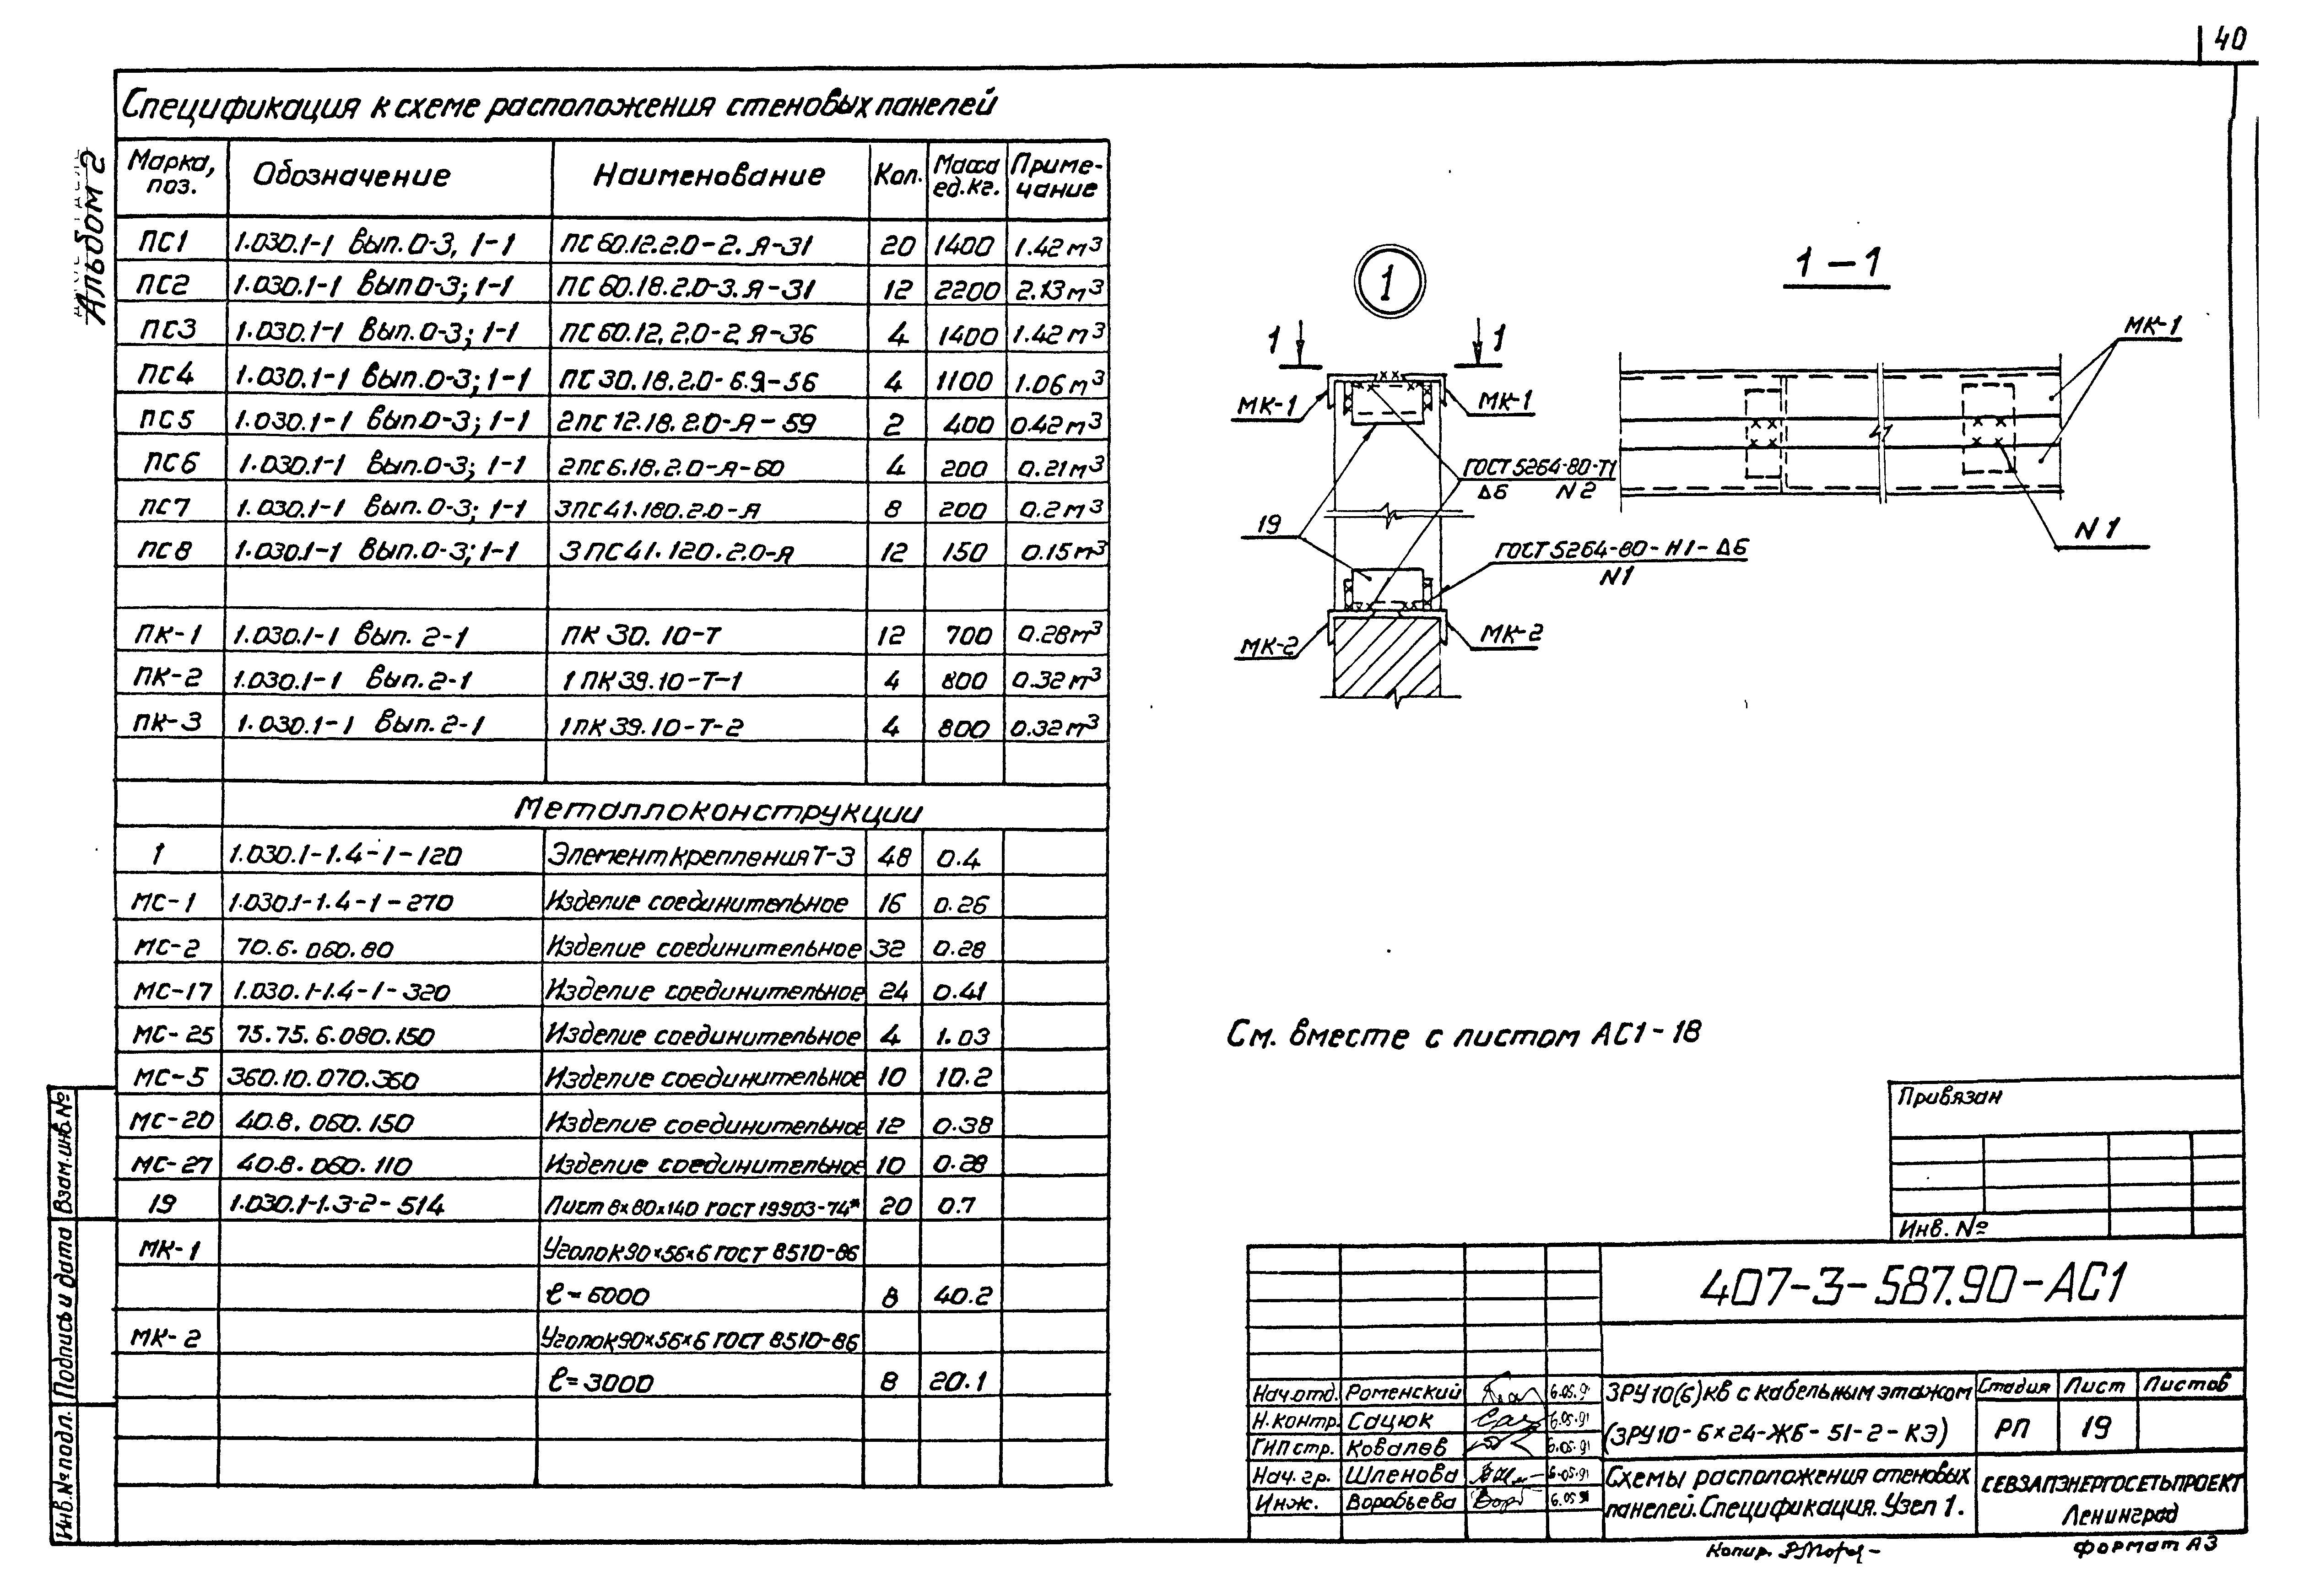 40
Альбом 2
Спецификация к схеме расположения стеновых панелей
Марка, поз. Обозначение Наименование Кол. Масса ед.кг. Приме-чание
ПС1 1.030.1-1 Вып. 0-3, 1-1 ПС 60.12.2.0-2.Я-31 20 1400 1.42 м³
ПС2 1.030.1-1 Вып 0-3; 1-1 ПС 60.18.2.0-3.Я-31 12 2200 2.13 м³
ПС3 1.030.1-1 Вып. 0-3; 1-1 ПС 60.12.2.0-2.Я-36 4 1400 1.42 м³
ПС4 1.030.1-1 Вып. 0-3; 1-1 ПС 30.18.2.0-6.Я-56 4 1100 1.06 м³
ПС5 1.030.1-1 Вып.0-3; 1-1 2ПС 12.18.2.0-Я-59 2 400 0.42 м³
ПС6 1.030.1-1 Вып.0-3; 1-1 2ПС 6.18.2.0-Я-60 4 200 0.21 м³
ПС7 1.030.1-1 Вып. 0-3; 1-1 3ПС 41.180.2.0-Я 8 200 0.2 м³
ПС8 1.030.1-1 Вып. 0-3; 1-1 3ПС 41.120.2.0-Я 12 150 0.15 м³
ПК-1 1.030.1-1 Вып. 2-1 ПК 30.10-Т 12 700 0.28 м³
ПК-2 1.030.1-1 Вып. 2-1 1ПК 39.10-Т-1 4 800 0.32 м³
ПК-3 1.030.1-1 Вып. 2-1 1ПК 39.10-Т-2 4 800 0.32 м³
Металлоконструкции
1 1.030.1-1.4-1-120 Элемент крепления Т-3 48 0.4
МС-1 1.030.1-1.4-1-270 Изделие соединительное 16 0.26
МС-2 70.6.060.80 Изделие соединительное 32 0.28
МС-17 1.030.1-1.4-1-320 Изделие соединительное 24 0.41
МС-25 75.75.6.080.150 Изделие соединительное 4 1.03
МС-5 360.10.070.360 Изделие соединительное 10 10.2
МС-20 40.8.060.150 Изделие соединительное 12 0.38
МС-27 40.8.060.110 Изделие соединительное 10 0.28
19 1.030.1-1.3-2-514 Лист 8×80×140 ГОСТ 19903-74* 20 0.7
МК-1 Уголок 90×56×6 ГОСТ 8510-86
ℓ=6000 8 40.2
МК-2 Уголок 90×56×6 ГОСТ 8510-86
ℓ=3000 8 20.1
1
1 1
МК-1 МК-1
ГОСТ 5264-80-Т1
Δ6 N2
19
ГОСТ 5264-80-Н1-Δ6
N1
МК-2 МК-2
1-1
МК-1
N1
См. вместе с листом АС1-18
Привязан
Инв. №
407-3-587.90-АС1
Нач.отд. Роменский 6.05.91
Н.контр. Сацюк 6.05.91
ГИП стр. Ковалев 6.05.91
Нач. гр. Шленова 6.05.91
Инж. Воробьева 6.05.91
ЗРУ 10(6)кв с кабельным этажом
(ЗРУ10-6×24-ЖБ-51-2-КЭ)
Стадия Лист Листов
РП 19
Схемы расположения стеновых
панелей. Спецификация. Узел 1.
СЕВЗАПЭНЕРГОСЕТЬПРОЕКТ
Ленинград
Копир.
Формат А3
Взам.инв.№
Подпись и дата
Инв.№подл.